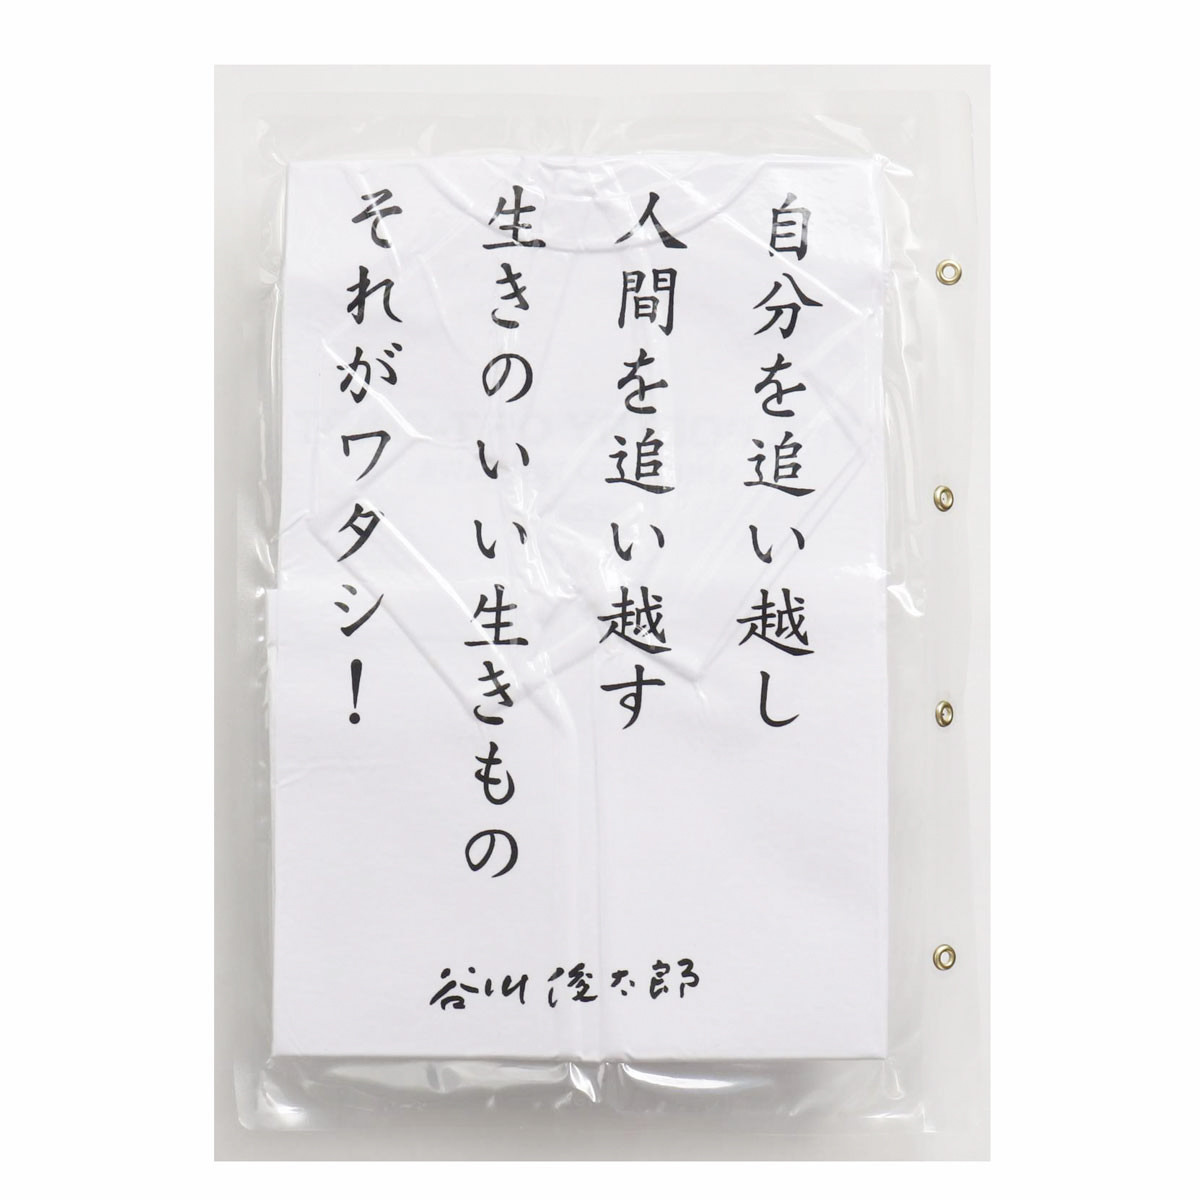 自分を追い越し
人間を追い越す
生きのいい生きもの
それがワタシ！
谷川俊太郎